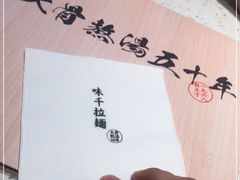 大骨熬湯五十年
味千拉麵